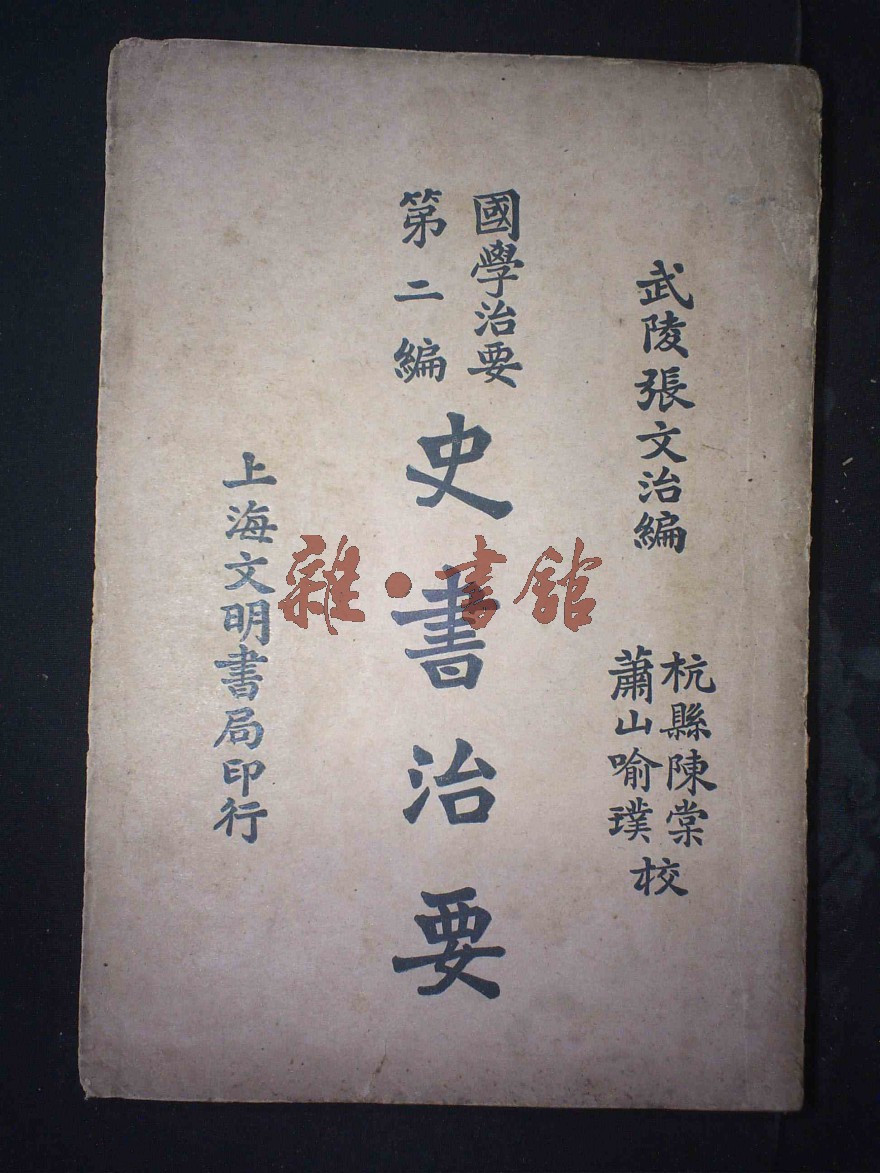 武陵張文治編
杭縣陳棠
蕭山喻璞
校
國學治要
第二編
史書治要
上海文明書局印行
雜·書館